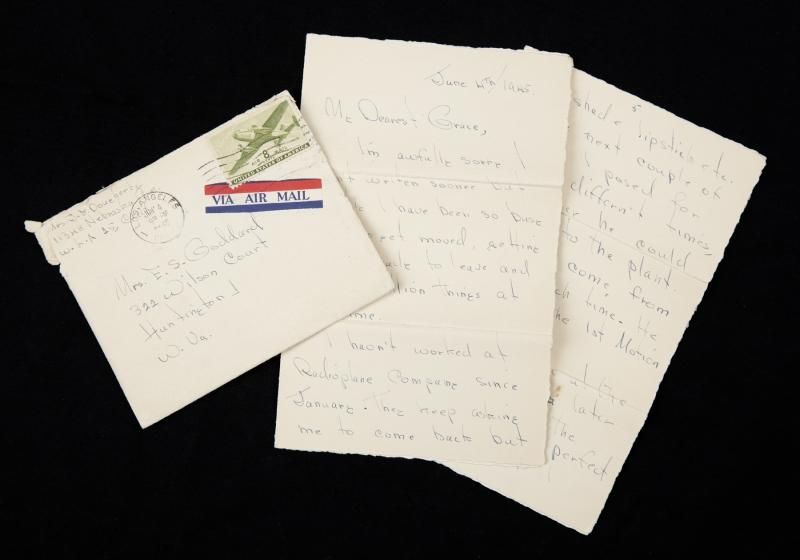 Mrs. J. E. Dougherty
11348 Nebraska
W. L.A
LOS ANGELES
JUN 4
1945
8
AIR MAIL
UNITED STATES OF AMERICA
VIA AIR MAIL
Mrs. E. S. Goddard
322 Wilson Court
Huntington 1
W. Va.
June 4th, 1945
My Dearest Grace,
I'm awfully sorry I
writen sooner but
I have been so busy
get moved, getting
to leave and
things at
I hasn't worked at
Radioplane Company since
January. They keep asking
me to come back but
5
shade lipstick etc.
next couple of
I posed for
differen't times
he could
to the plant.
come from
time. He
the 1st Motion
at the
later
the
perfect